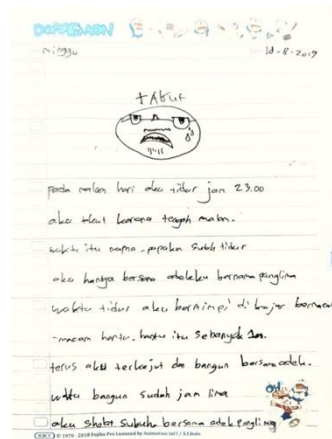 DORAEMON
minggu
18-8-2019
takut
pada malam hari aku tidur jam 23.00
aku takut karena tengah malam.
waktu itu mama, papaku sudah tidur
aku hanya bersama adekku bernama panglima
waktu tidur aku bermimpi di kejar bermacam
-macam hantu, hantu itu sebanyak
terus aku terkejut dan bangun bersama adek.
waktu bangun sudah jam lima
aku sholat subuh bersama adek panglima